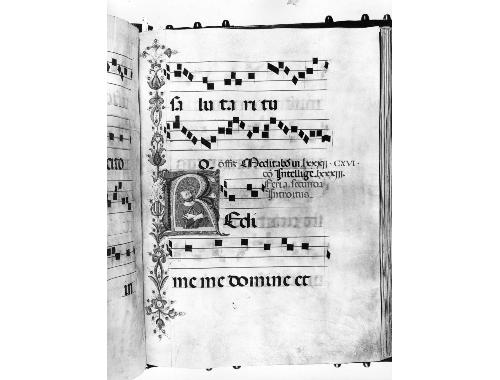 sa lu ta ri tu
o. Meditabor in. lxxxii · CXVI ·
cō Intellige. lxxxiii.
Feria secunda
Introitus.
REdi
me me domine et